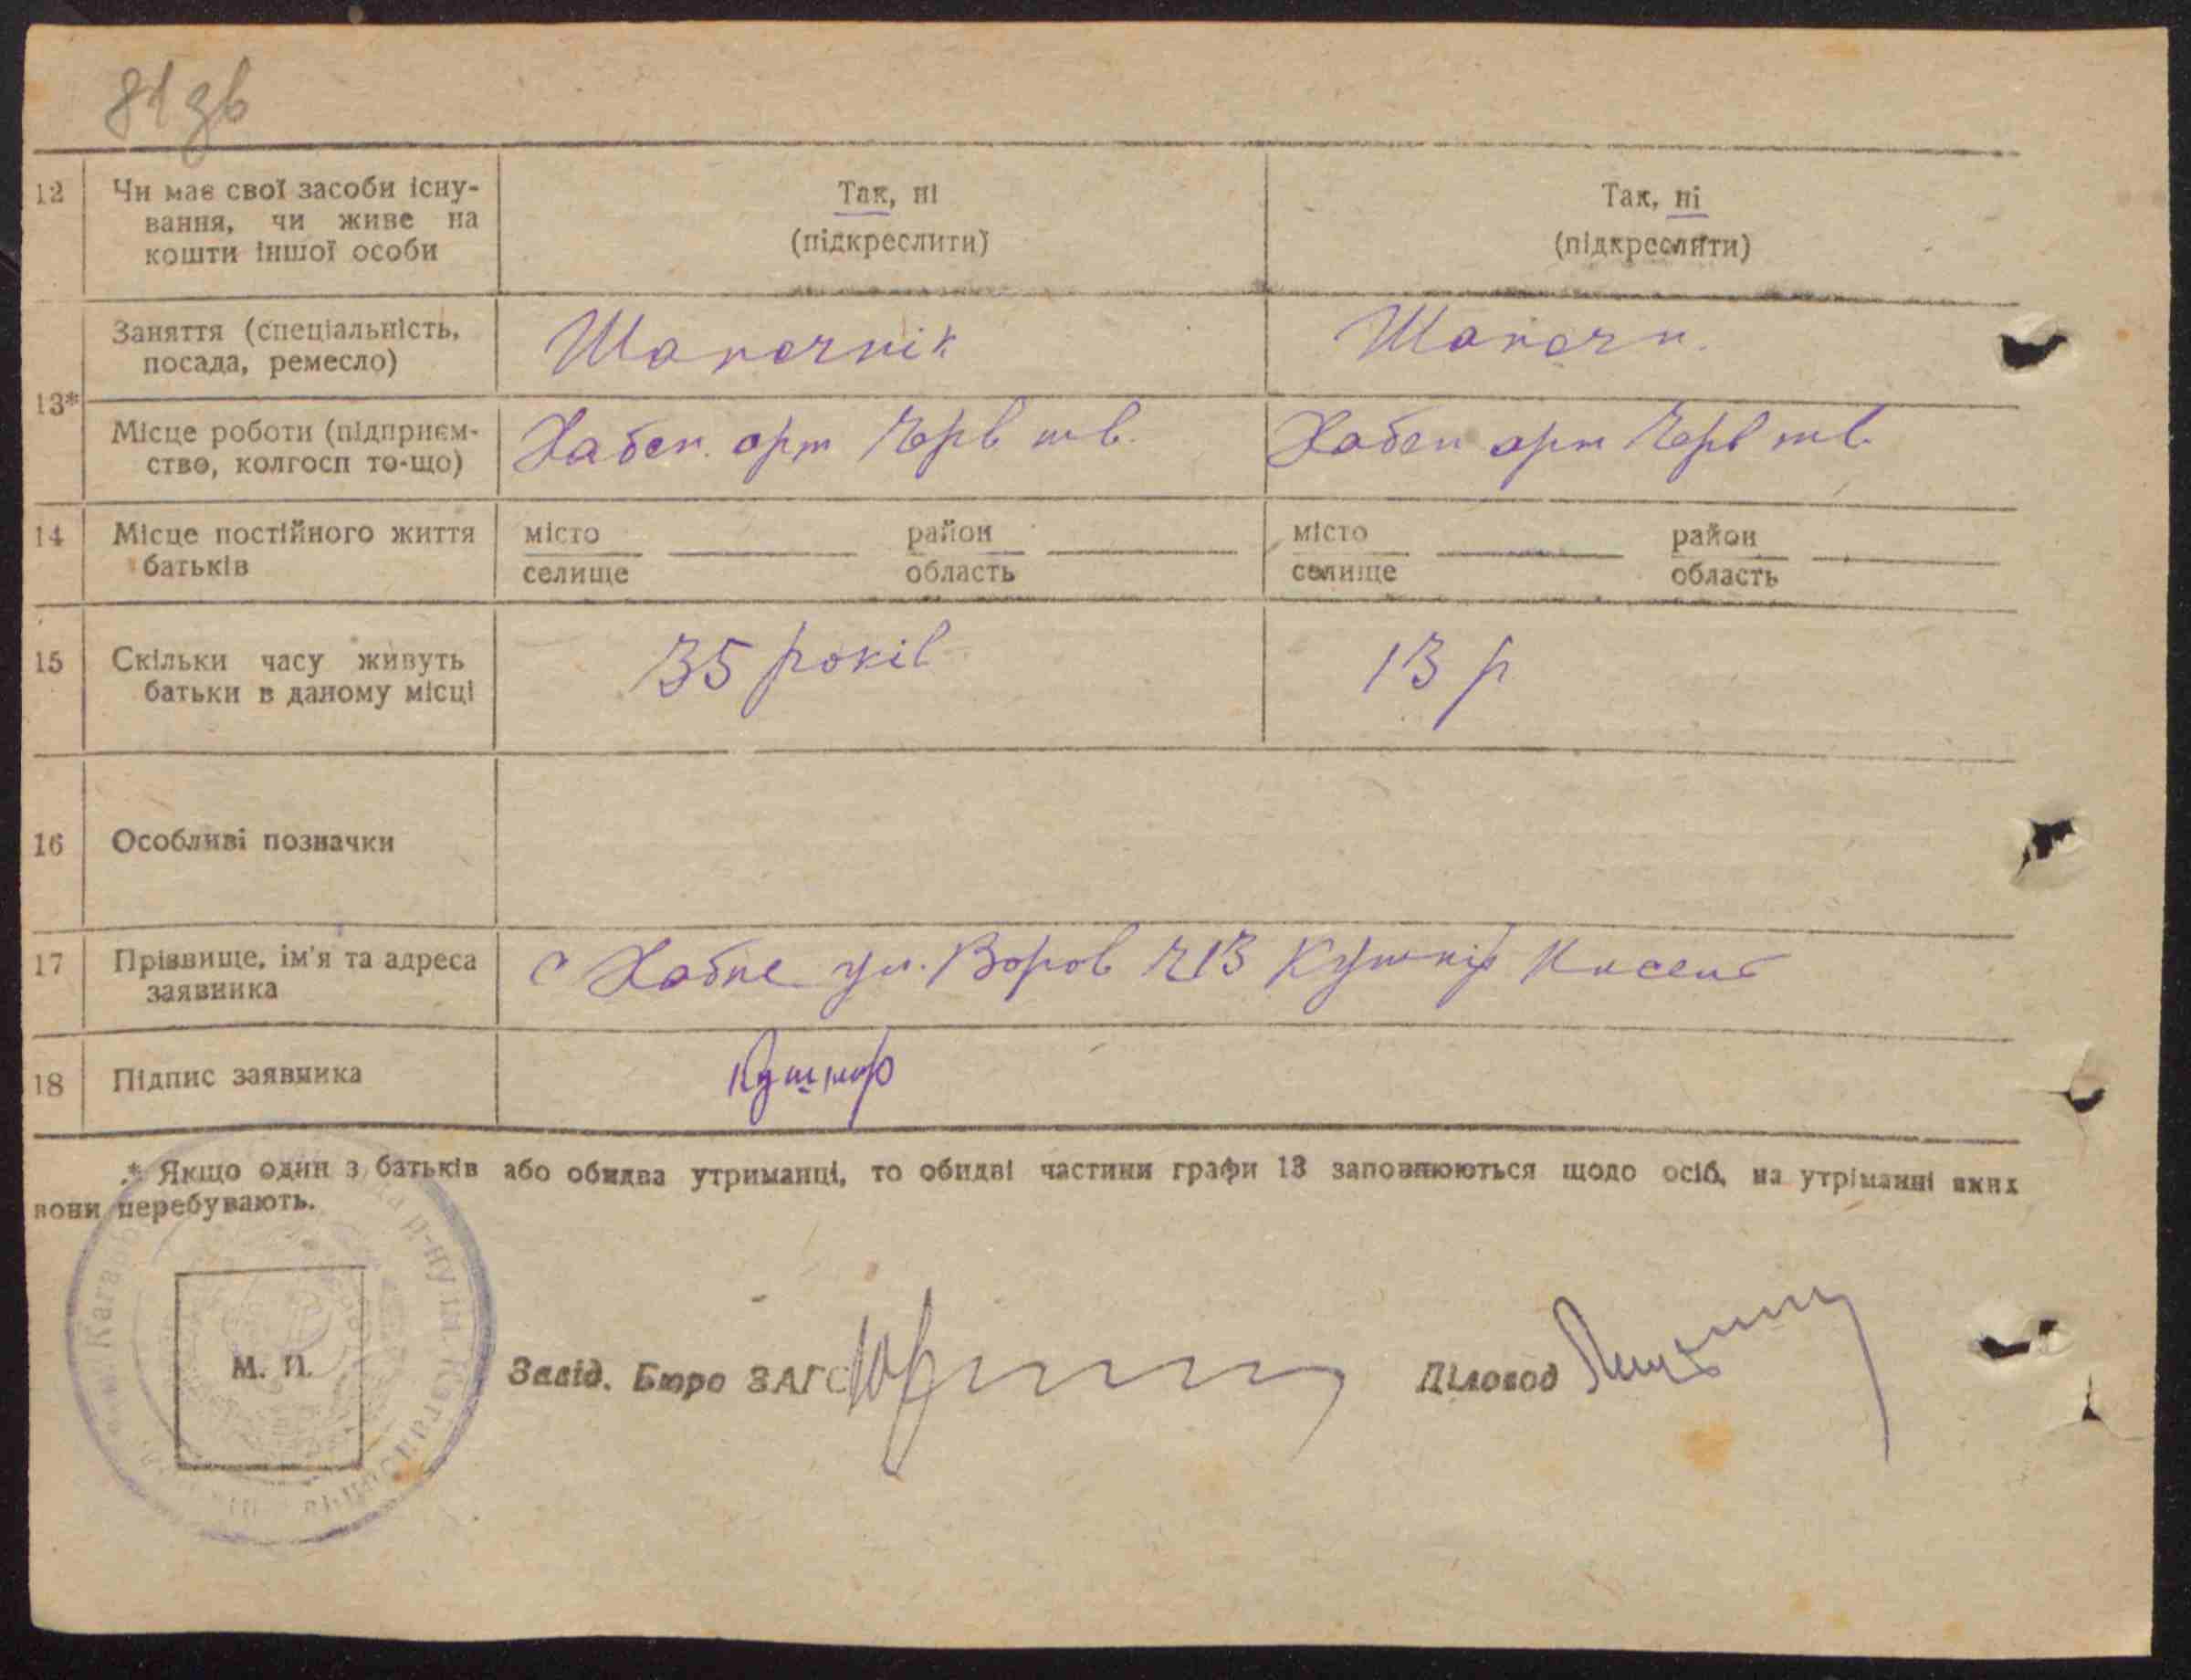 81 зв
12 Чи має свої засоби існу- Так, ні Так, ні
вання, чи живе на (підкреслити) (підкреслити)
кошти іншої особи
13* Заняття (спеціальність, Шапочнік Шапочн.
посада, ремесло)
Місце роботи (підприєм- Хабен. арт Черв шв. Хабен арт Черв шв.
ство, колгосп то-що)
14 Місце постійного життя місто район місто район
батьків селище область селище область
15 Скільки часу живуть 35 років 13 р
батьки в даному місці
16 Особливі позначки
17 Прізвище, ім'я та адреса с Хабне ул. Воров 13 Кушнір
заявника
18 Підпис заявника Кушнир
* Якщо один з батьків або обидва утриманці, то обидві частини графи 13 заповнюються щодо осіб, на утріманні яких
вони перебувають.
М. П.
Завід. Бюро ЗАГС Діловод